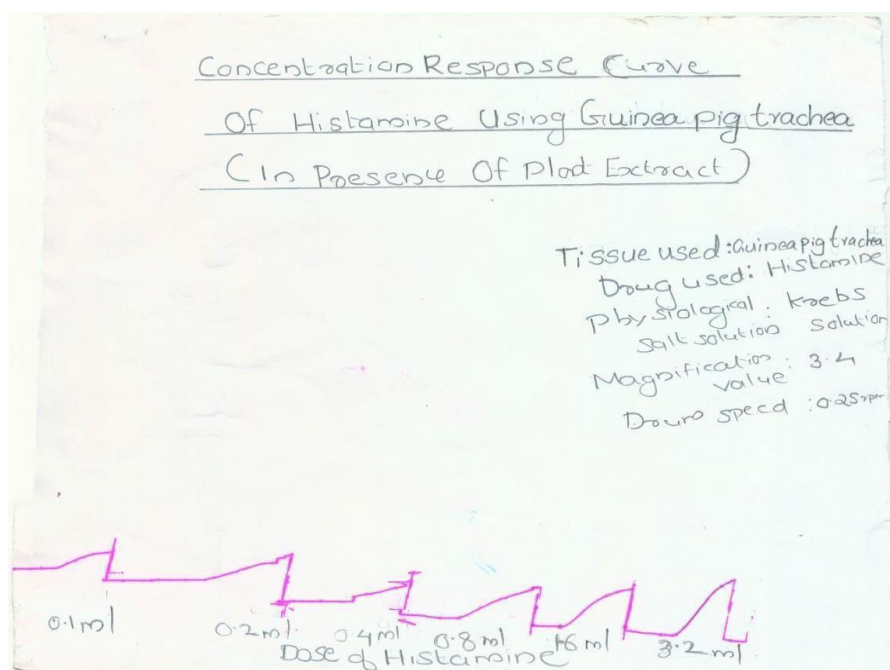 Concentration Response Curve
Of Histamine Using Guinea pig trachea
(In Presence Of Plant Extract)
Tissue used: Guinea pig trachea
Drug used: Histamine
Physiological : Krebs
salt solution solution
Magnification : 3.4
value
Drum speed : 0.25 rpm
0.1 ml 0.2 ml. 0.4 ml 0.8 ml 1.6 ml 3.2 ml
Dose of Histamine